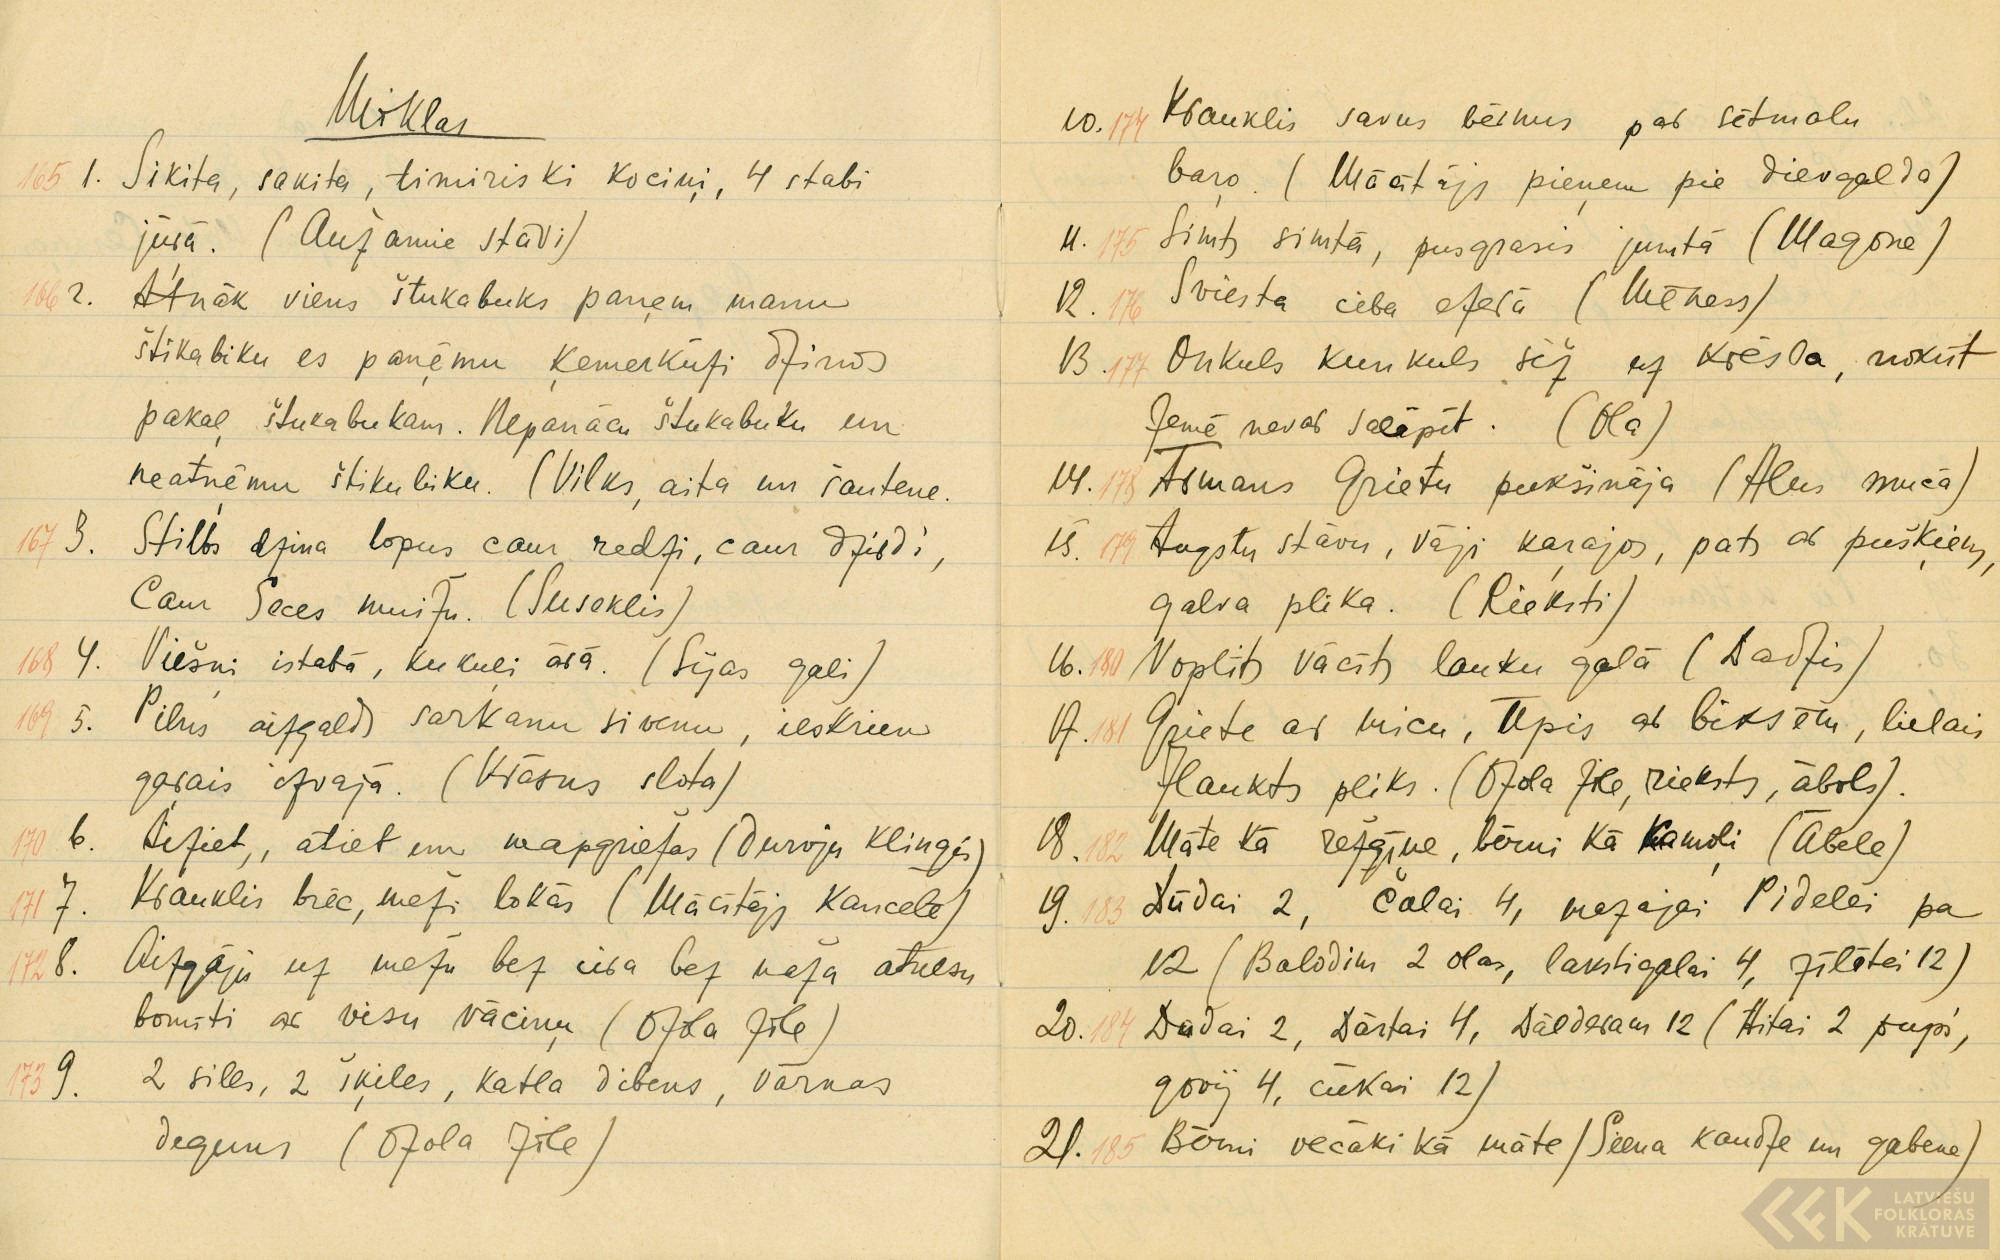 Mīklas
165 1. Sikita, sakita, timiriski kociņi, 4 stabi
jūrā. (Aužamie stāvi)
166 2. Atnāk viens štukabuks paņem manu
štikabiku es paņēmu ķemerkūži dzinos
pakaļ štukabukam. Nepanācu štukabuku un
neatņēmu štikubiku. (Vilks, aita un šautene.
167 3. Stilbs dzina lopus caur redzi, caur dzirdi,
Caur Seces muižu. (Suseklis)
168 4. Viešņi istabā, kukuļi ārā. (Sijas gali)
169 5. Pilns aizgalds sarkanu sivenu, ieskrien
garais izvajā. (Krāsns slota)
170 6. Aiziet, atiet un neapgriežas (Durvju kliņģis)
171 7. Krauklis brēc, meži lokās (Mācītājs kancelē)
172 8. Aizgāju uz mežu bez cirvja bez naža atnesu
bomīti ar visu vāciņu (Ozola zīle)
173 9. 2 siles, 2 šķiles, katla dibens, vārnas
deguns (Ozola zīle)
10. 174 Krauklis savus bērnus par sētmalu
baro. (Mācītājs pieņem pie dievgalda)
11. 175 Simts simtā, pusgrasis jumtā (Magone)
12. 176 Sviesta ciba ezerā (Mēness)
13. 177 Onkuls kunkuls sēž uz krēsla, nokrīt
zemē nevar salāpīt. (Ola)
14. 178 Armans Grietu pukšināja (Alus mucā)
15. 179 Augstu stāvu, vāji karājos, pats ar pušķiem,
galva plika. (Rieksti)
16. 180 Noplīts vācīts lauku galā (Dadzis)
17. 181 Griete ar micu, Upis ar biksēm, lielais
zlaukts pliks. (Ozola zīle, rieksts, ābols).
18. 182 Māte kā režģine, bērni kā kamoļi (Ābele)
19. 183 Dūdai 2, Čalai 4, mazajai Pidelei pa
12 (Balodim 2 olas, lakstigalai 4, zīlītei 12)
20. 184 Dudai 2, Dārtai 4, Dālderam 12 (Aitai 2 pupi,
govij 4, cūkai 12)
21. 185 Bērni vecāki kā māte (Siena kaudze un gubene)
LATVIEŠU
FOLKLORAS
KRĀTUVE